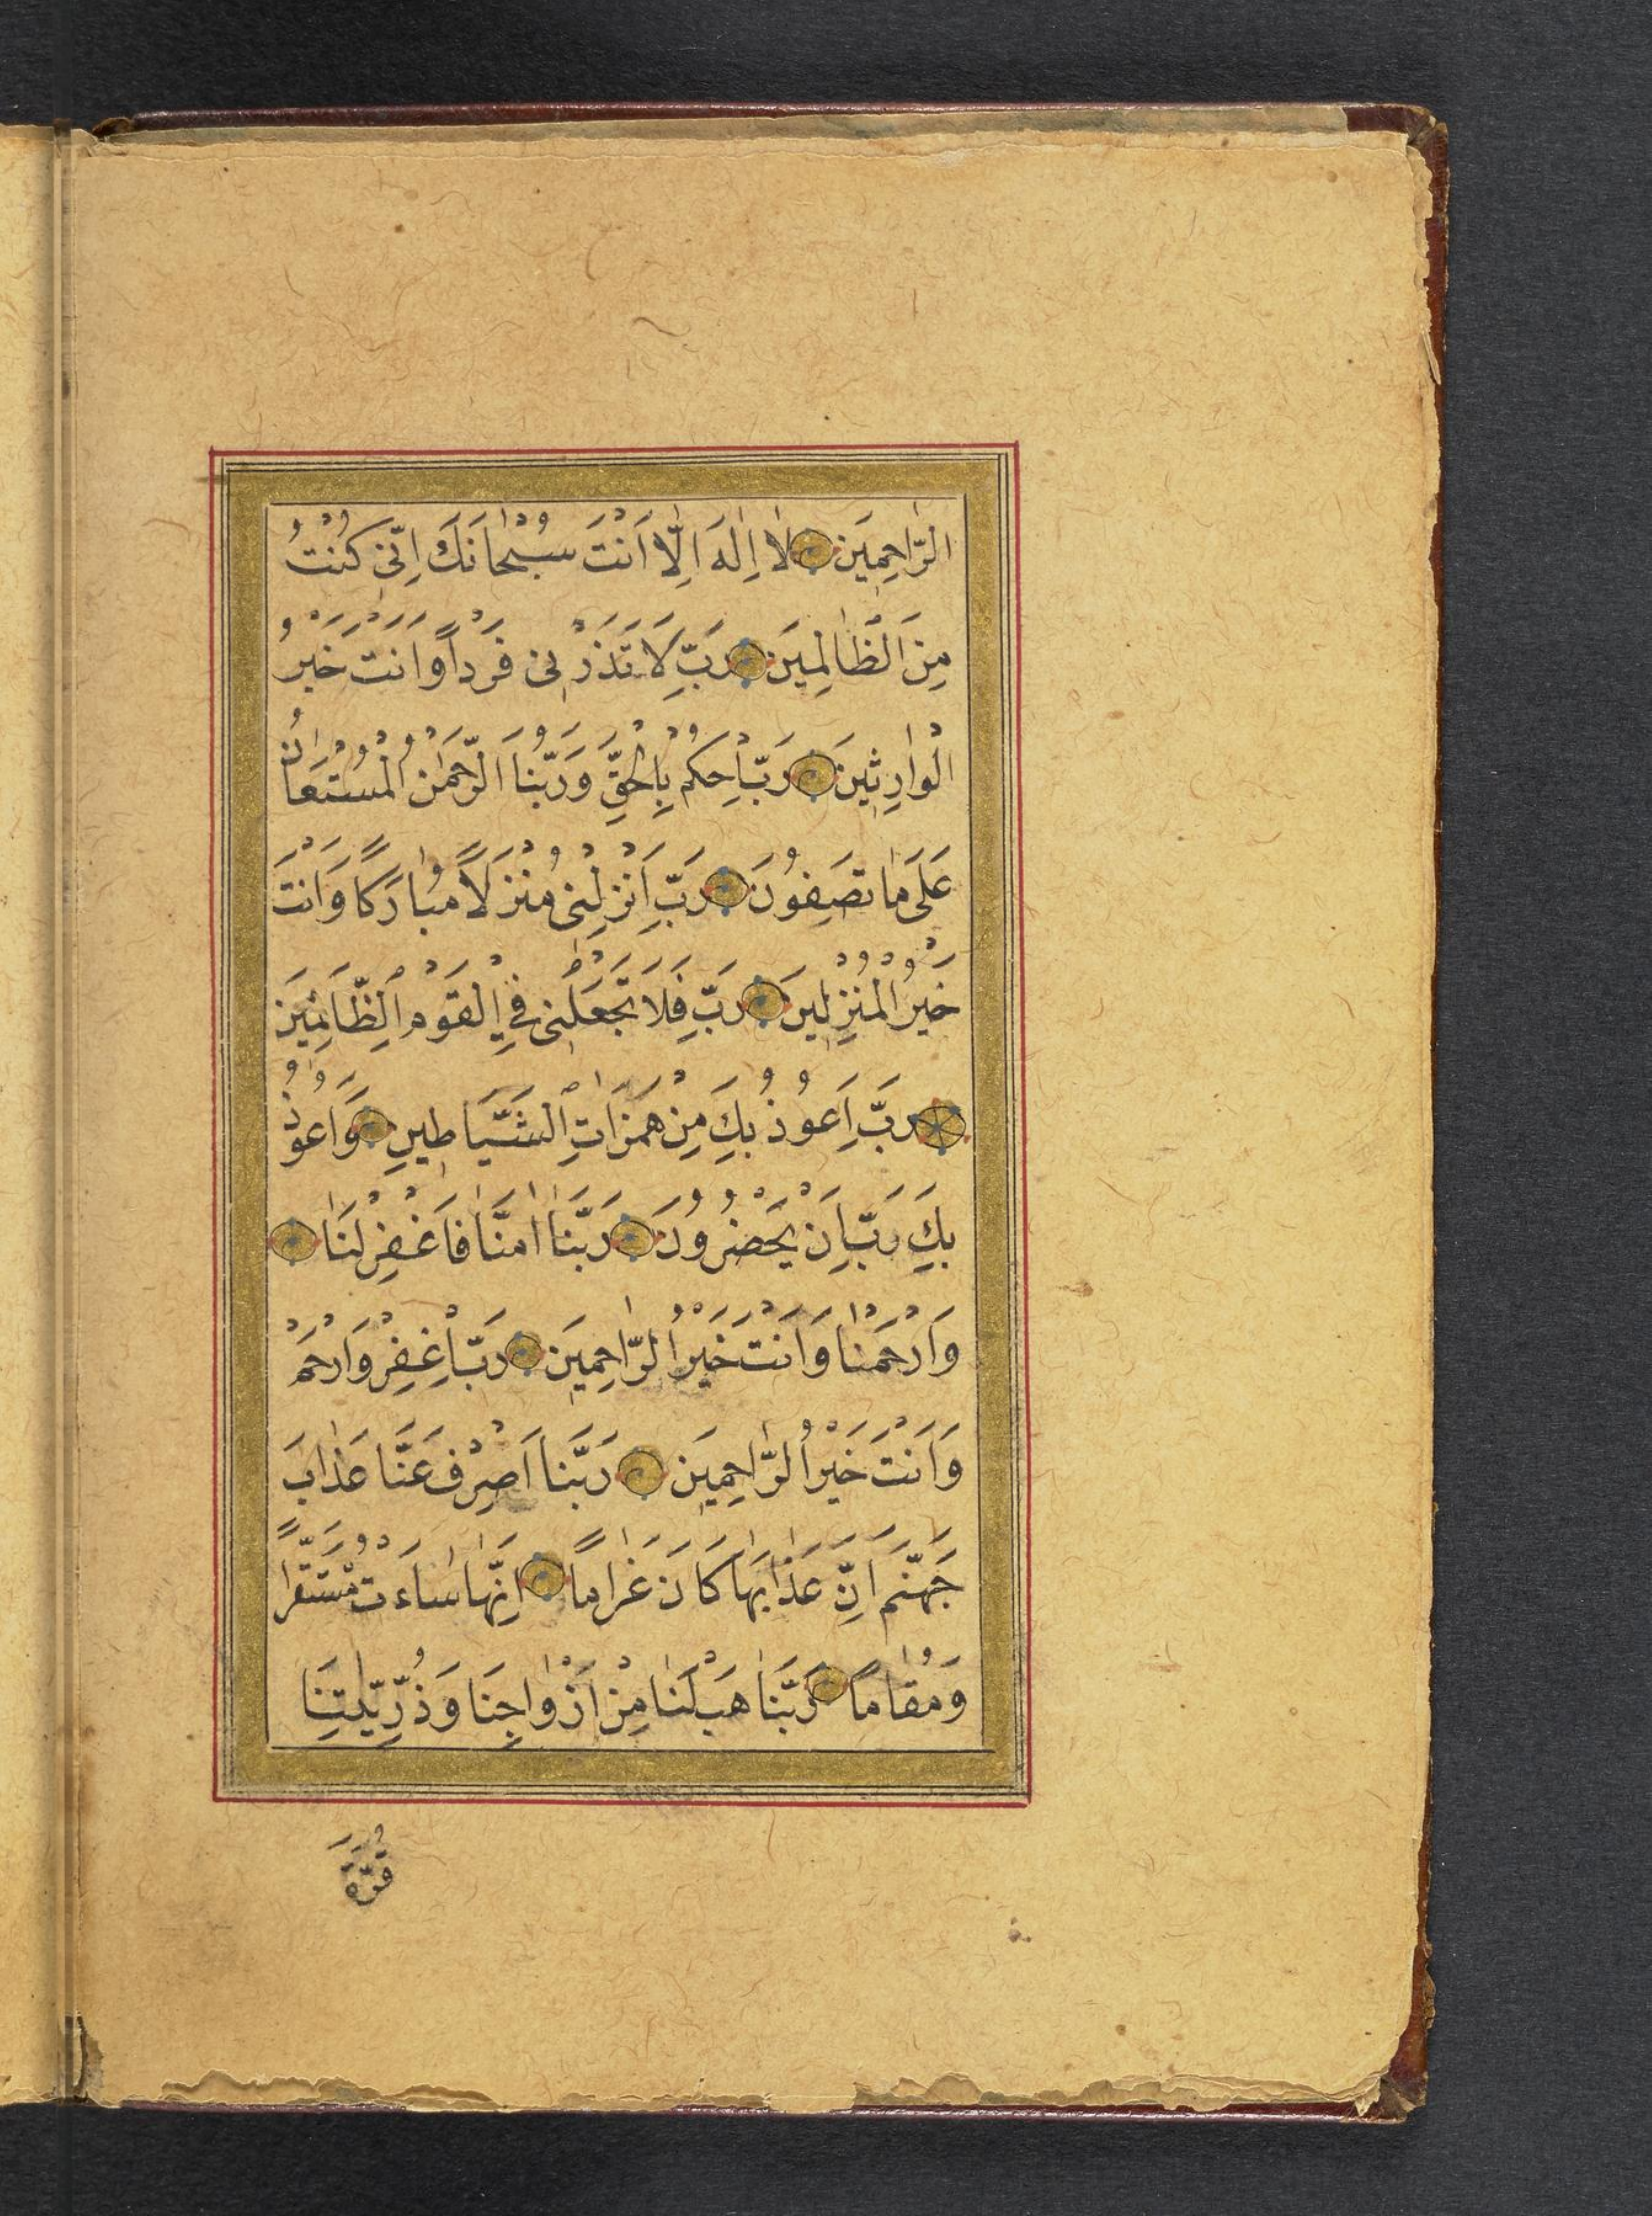 الرَّاحِمِينَ لَا اِلٰهَ اِلَّا اَنْتَ سُبْحَانَكَ اِنِّى كُنْتُ
مِنَ الظَّالِمِينَ رَبِّ لَا تَذَرْنِى فَرْداً وَاَنْتَ خَيْرُ
الْوَارِثِينَ رَبِّ احْكُمْ بِالْحَقِّ وَرَبُّنَا الرَّحْمٰنُ الْمُسْتَعَانُ
عَلَى مَا تَصِفُونَ رَبِّ اَنْزِلْنِى مُنْزَلًا مُبَارَكًا وَاَنْتَ
خَيْرُ الْمُنْزِلِينَ رَبِّ فَلَا تَجْعَلْنِى فِي الْقَوْمِ الظَّالِمِينَ
رَبِّ اَعُوذُ بِكَ مِنْ هَمَزَاتِ الشَّيَاطِينِ وَاَعُوذُ
بِكَ رَبِّ اَنْ يَحْضُرُونَ رَبَّنَا اٰمَنَّا فَاغْفِرْ لَنَا
وَارْحَمْنَا وَاَنْتَ خَيْرُ الرَّاحِمِينَ رَبِّ اغْفِرْ وَارْحَمْ
وَاَنْتَ خَيْرُ الرَّاحِمِينَ رَبَّنَا اصْرِفْ عَنَّا عَذَابَ
جَهَنَّمَ اِنَّ عَذَابَهَا كَانَ غَرَامًا اِنَّهَا سَاءَتْ مُسْتَقَرًّا
وَمُقَامًا رَبَّنَا هَبْ لَنَا مِنْ اَزْوَاجِنَا وَذُرِّيّٰتِنَا
قُرَّةَ